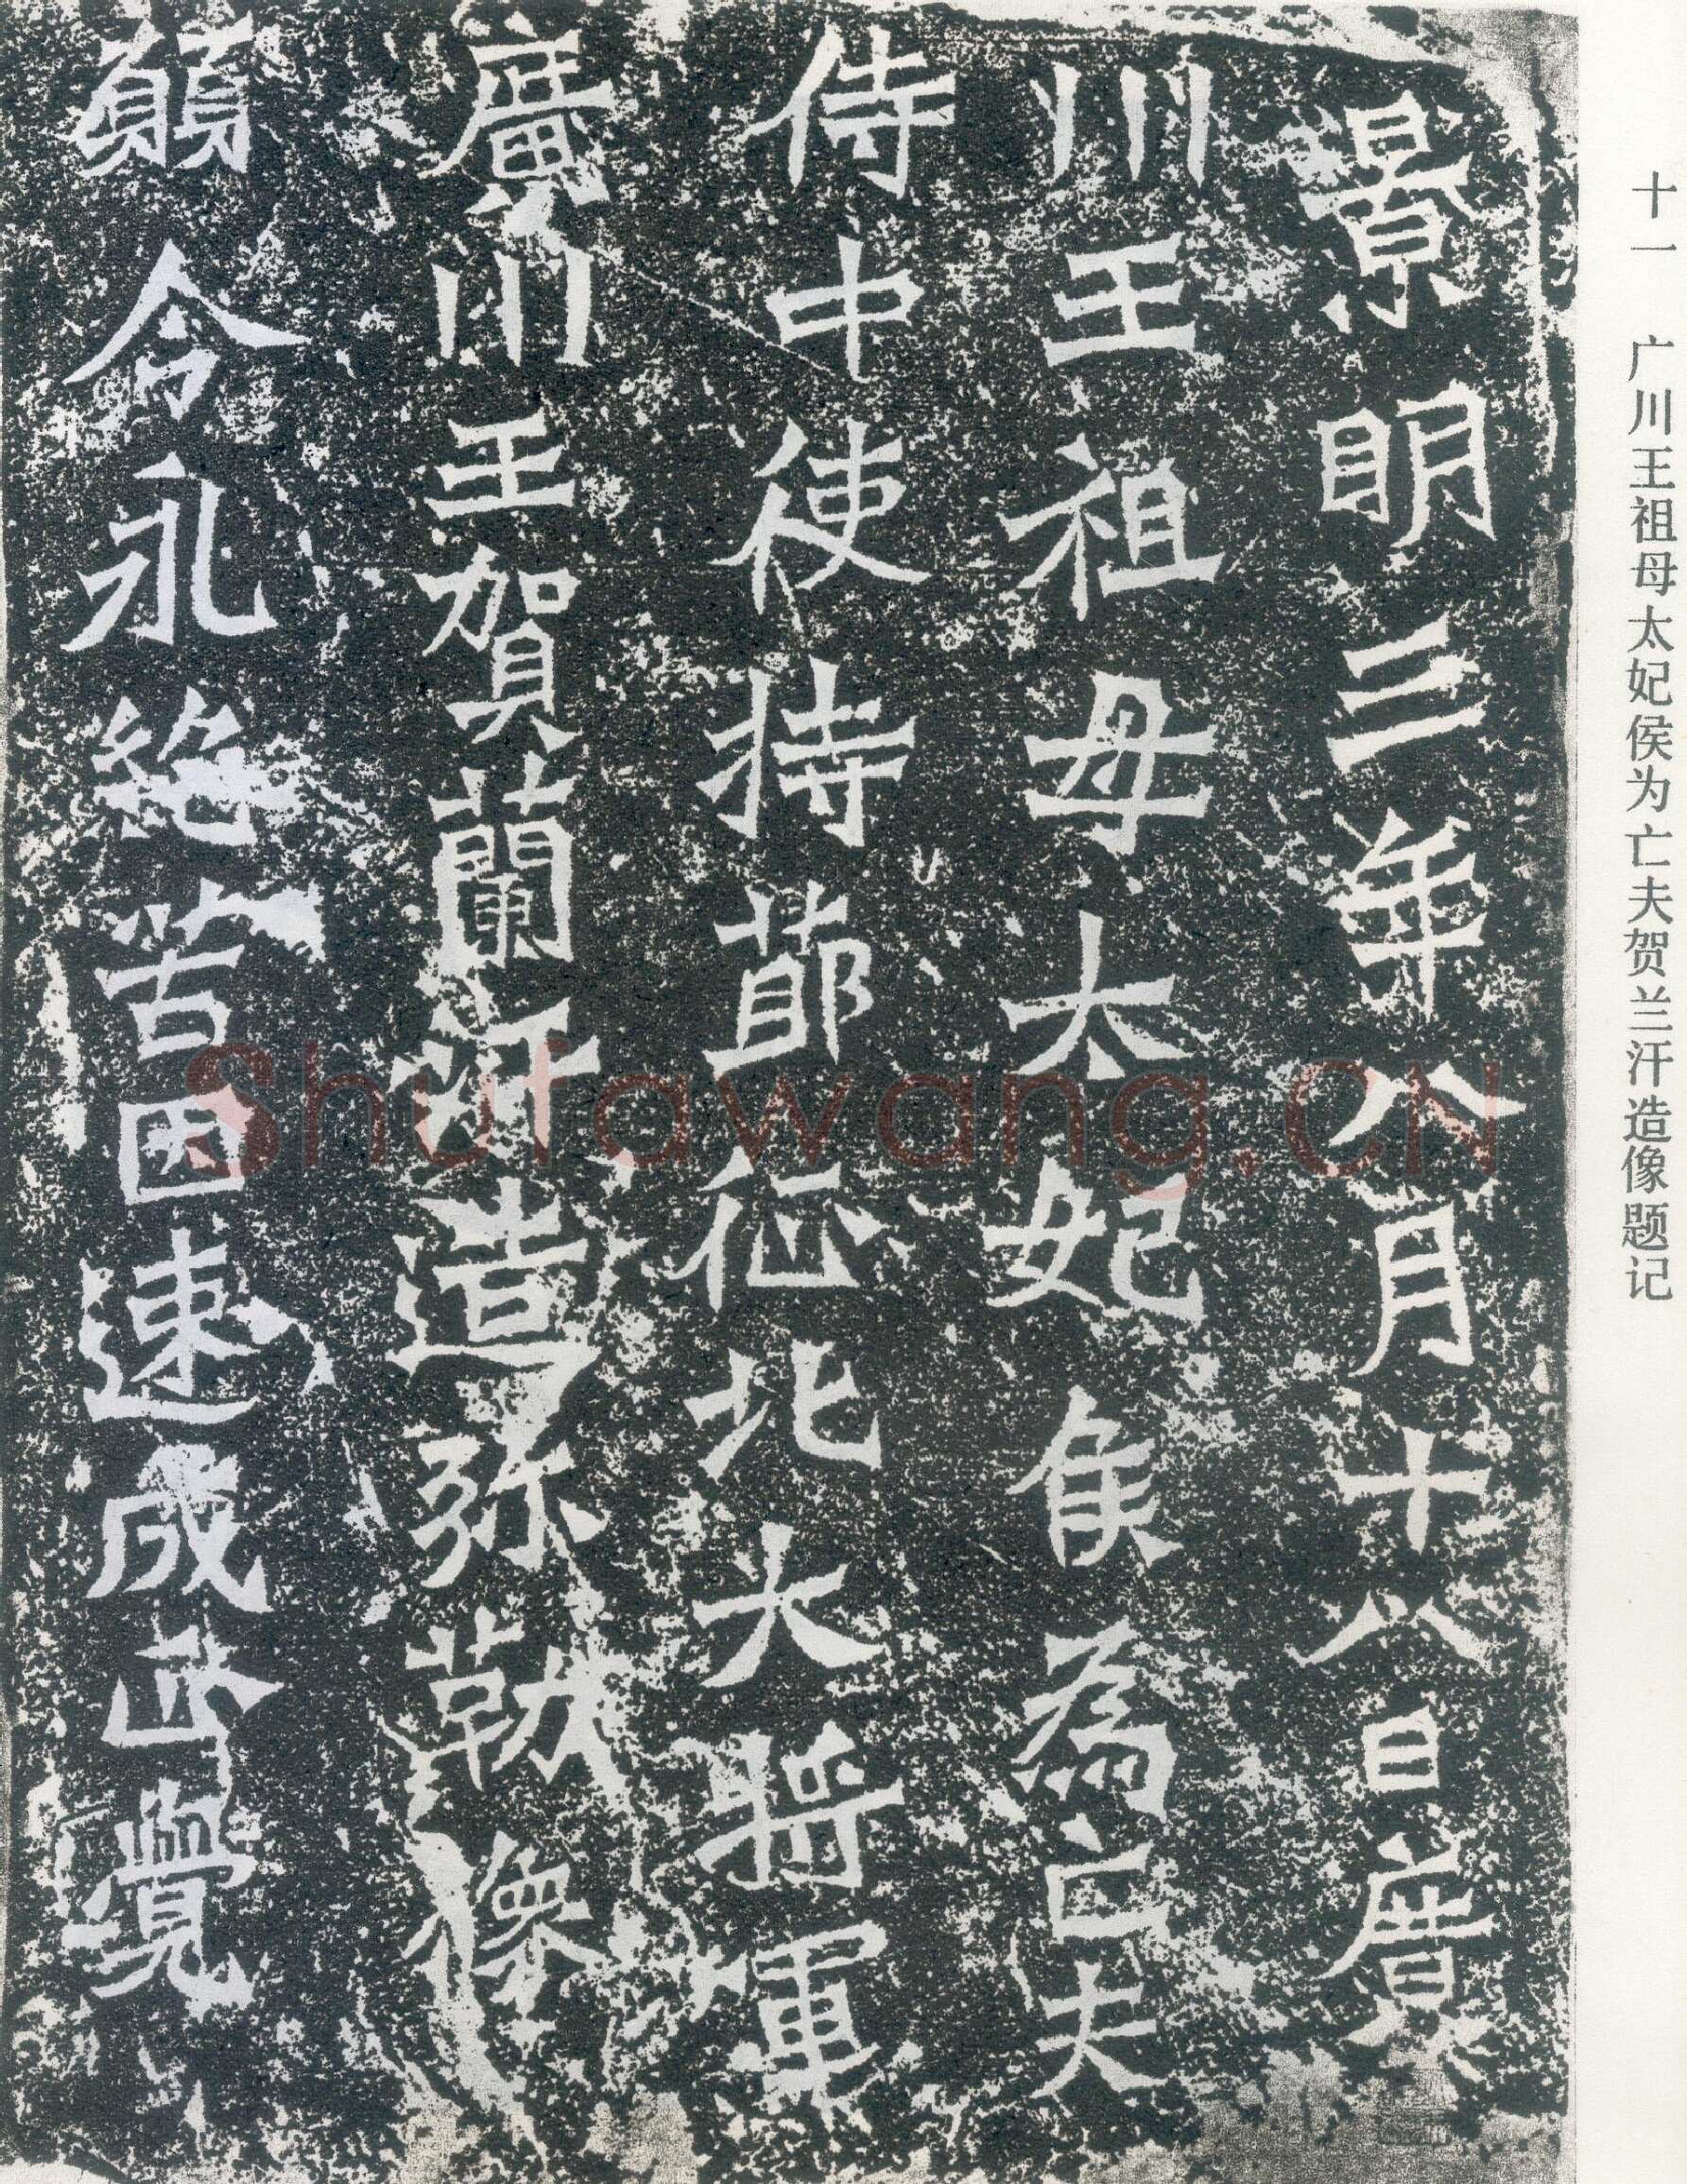 十一 广川王祖母太妃侯为亡夫贺兰汗造像题记
景明三年八月十八日廣
川王祖母太妃侯為亡夫
侍中使持節征北大將軍
廣川王賀蘭汗造弥勒像
願令永絕苦因速成正覺
Shufawang.CN